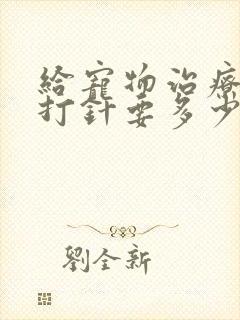 給寵物治療
打針要多少
劉全新